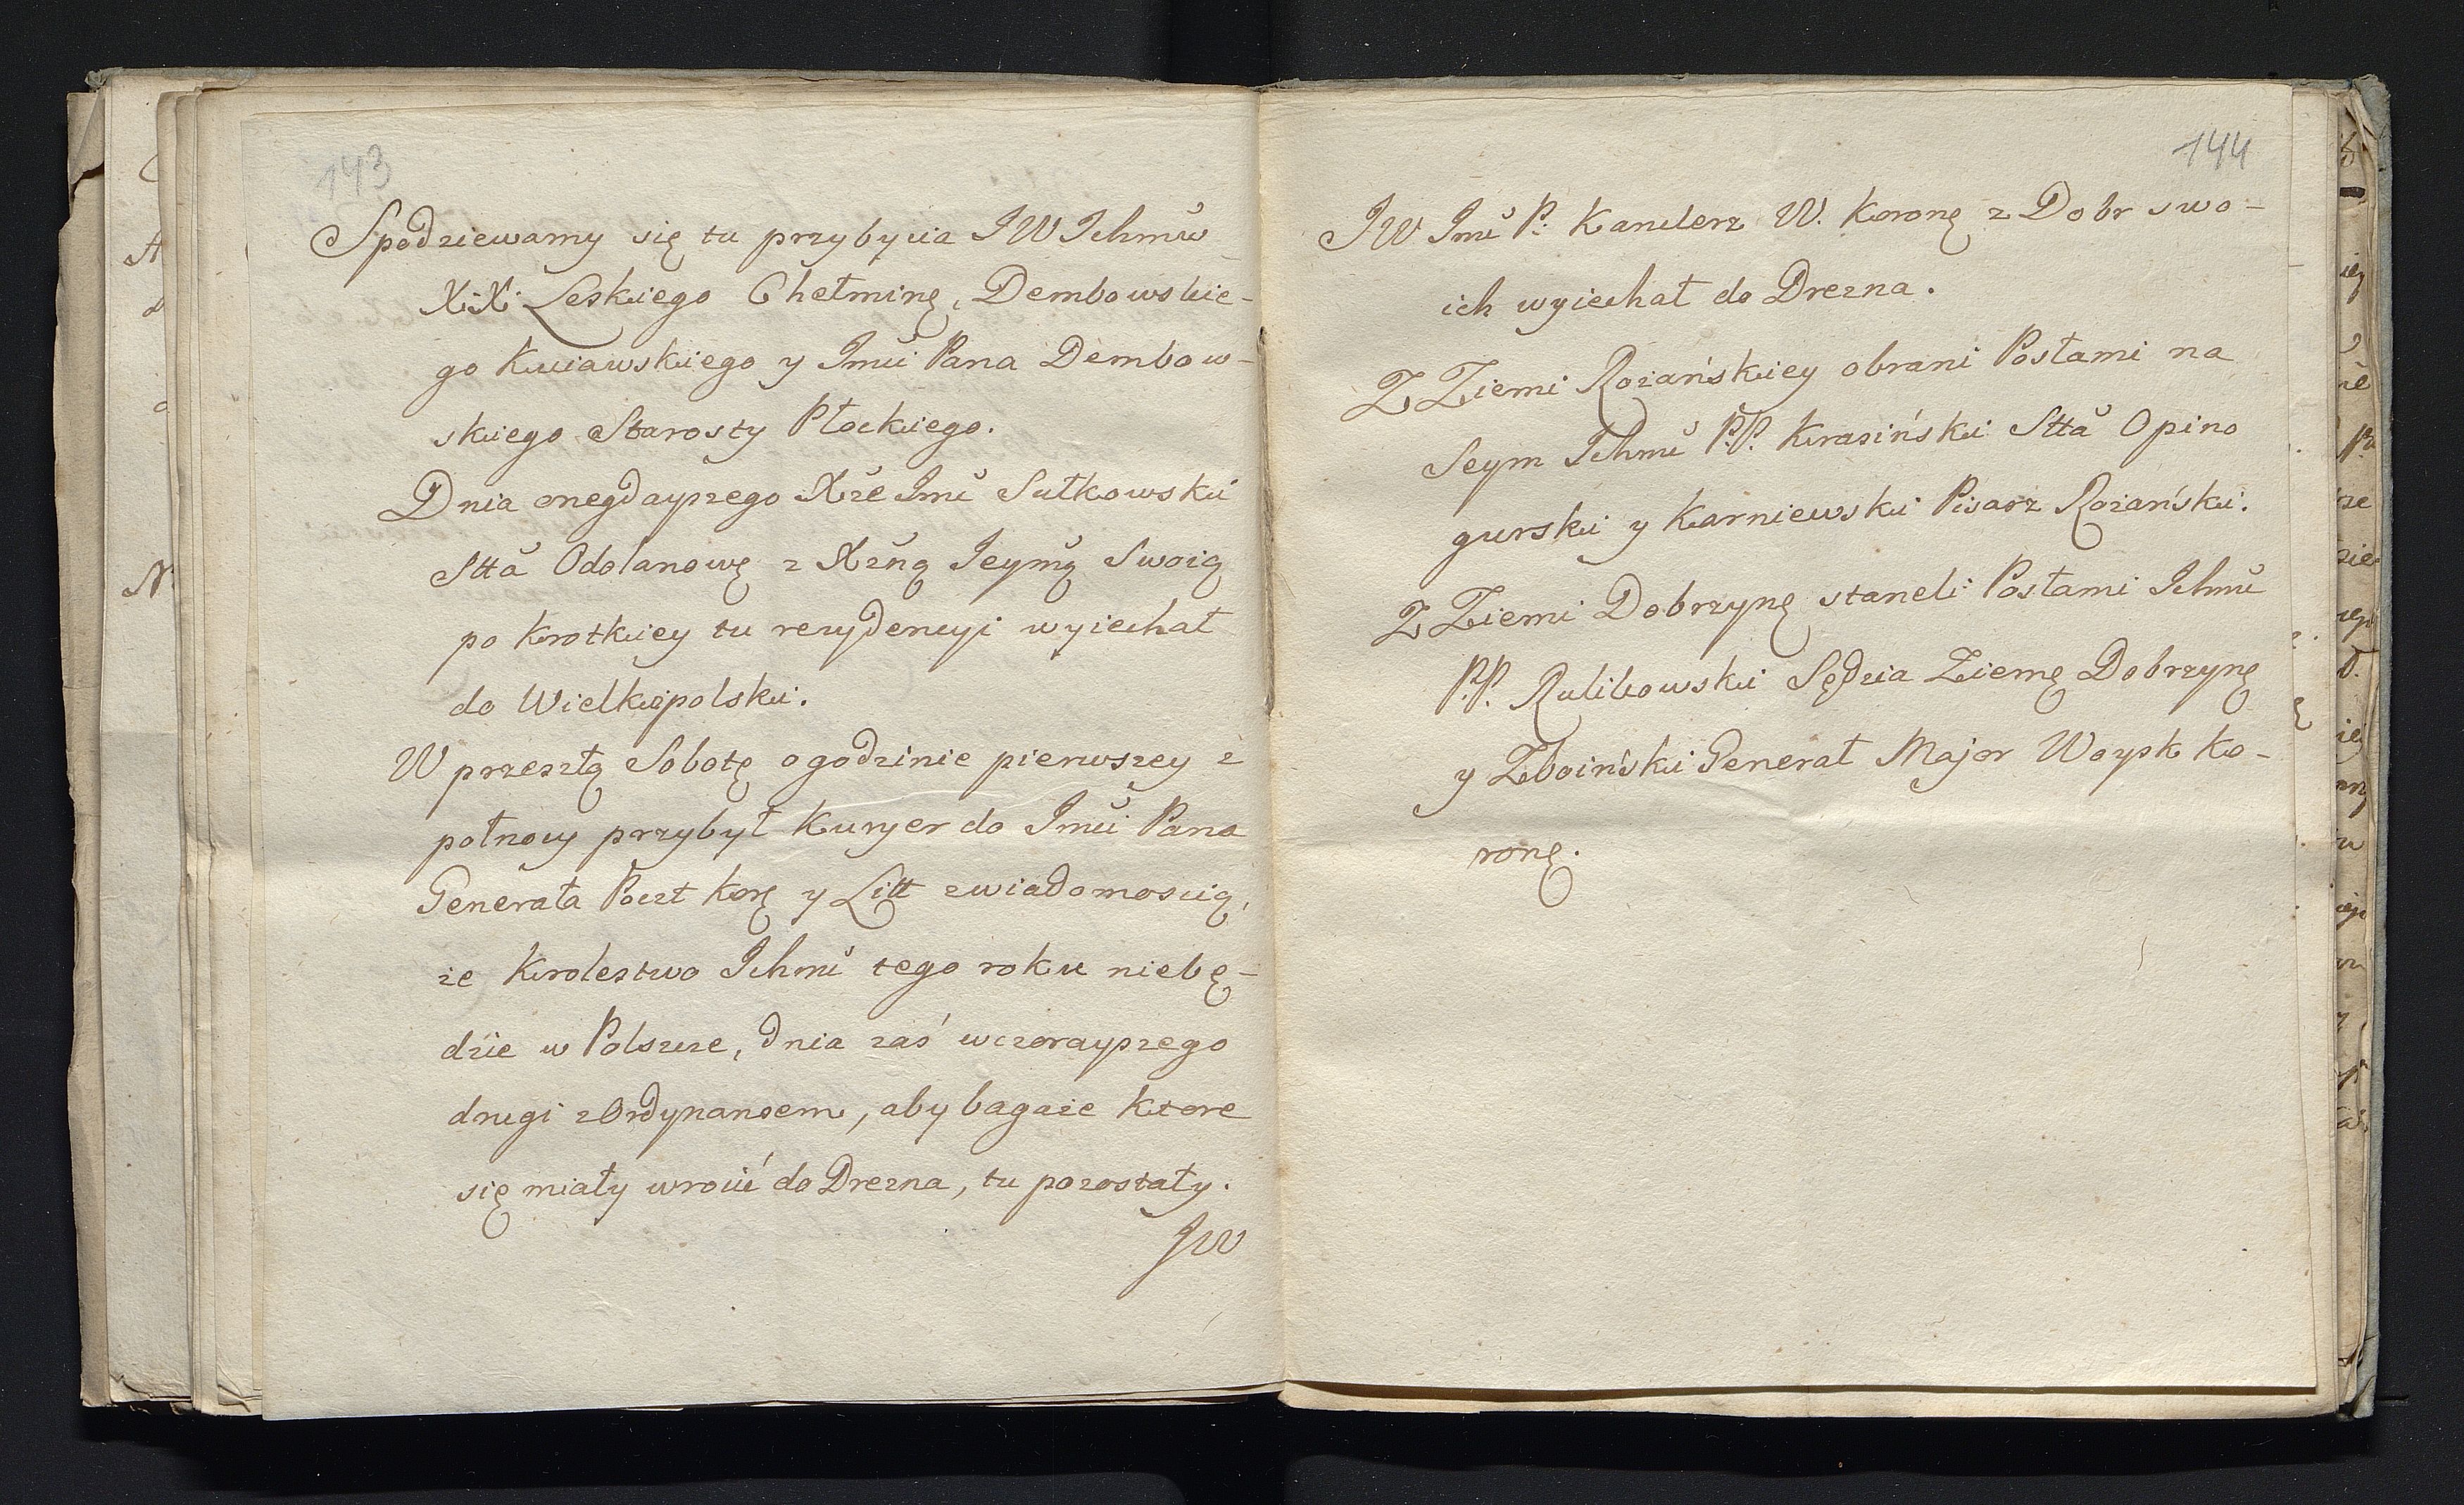 143
Spodziewamy się tu przybycia JW Ichmċw
X.X. Leskiego Chełminę, Dembowskie-
go Kuiawskiego y Jmći Pana Dembow-
skiego Starosty Płockiego.
Dnia onegdayszego Xże Jmć Sułkowski
Stta Odolanowę z Xżną Jeymą Swoią
po krotkiey tu rezydencyi wyiechał
do Wielkiepolski.
W przeszłą Sobotę o godzinie pierwszey z
połnocy przybył Kuryer do Jmći Pana
Generała Poczt Korę y Litt zwiadomoscią,
że Krolestwo Ichmć tego roku niebę-
dzie w Polszcze, dnia zaś wczorayszego
drugi z Ordynansem, aby bagaże ktore
się miały wrocić do Drezna, tu pozostały.
JW
144
JW Jmć P. Kanclerz W. Koronę z Dobr swo-
ich wyiechał do Drezna.
Z Ziemi Rożańskiey obrani Posłami na
Seym Ichmć P.P. Krasiński Stta Opino
gurski y Karniewski Pisarz Rożański.
Z Ziemi Dobrzynę staneli Posłami Ichmć
P.P. Rulikowski Sędzia Ziemę Dobrzynę
y Zboiński Generał Major Woysk Ko-
ronę.